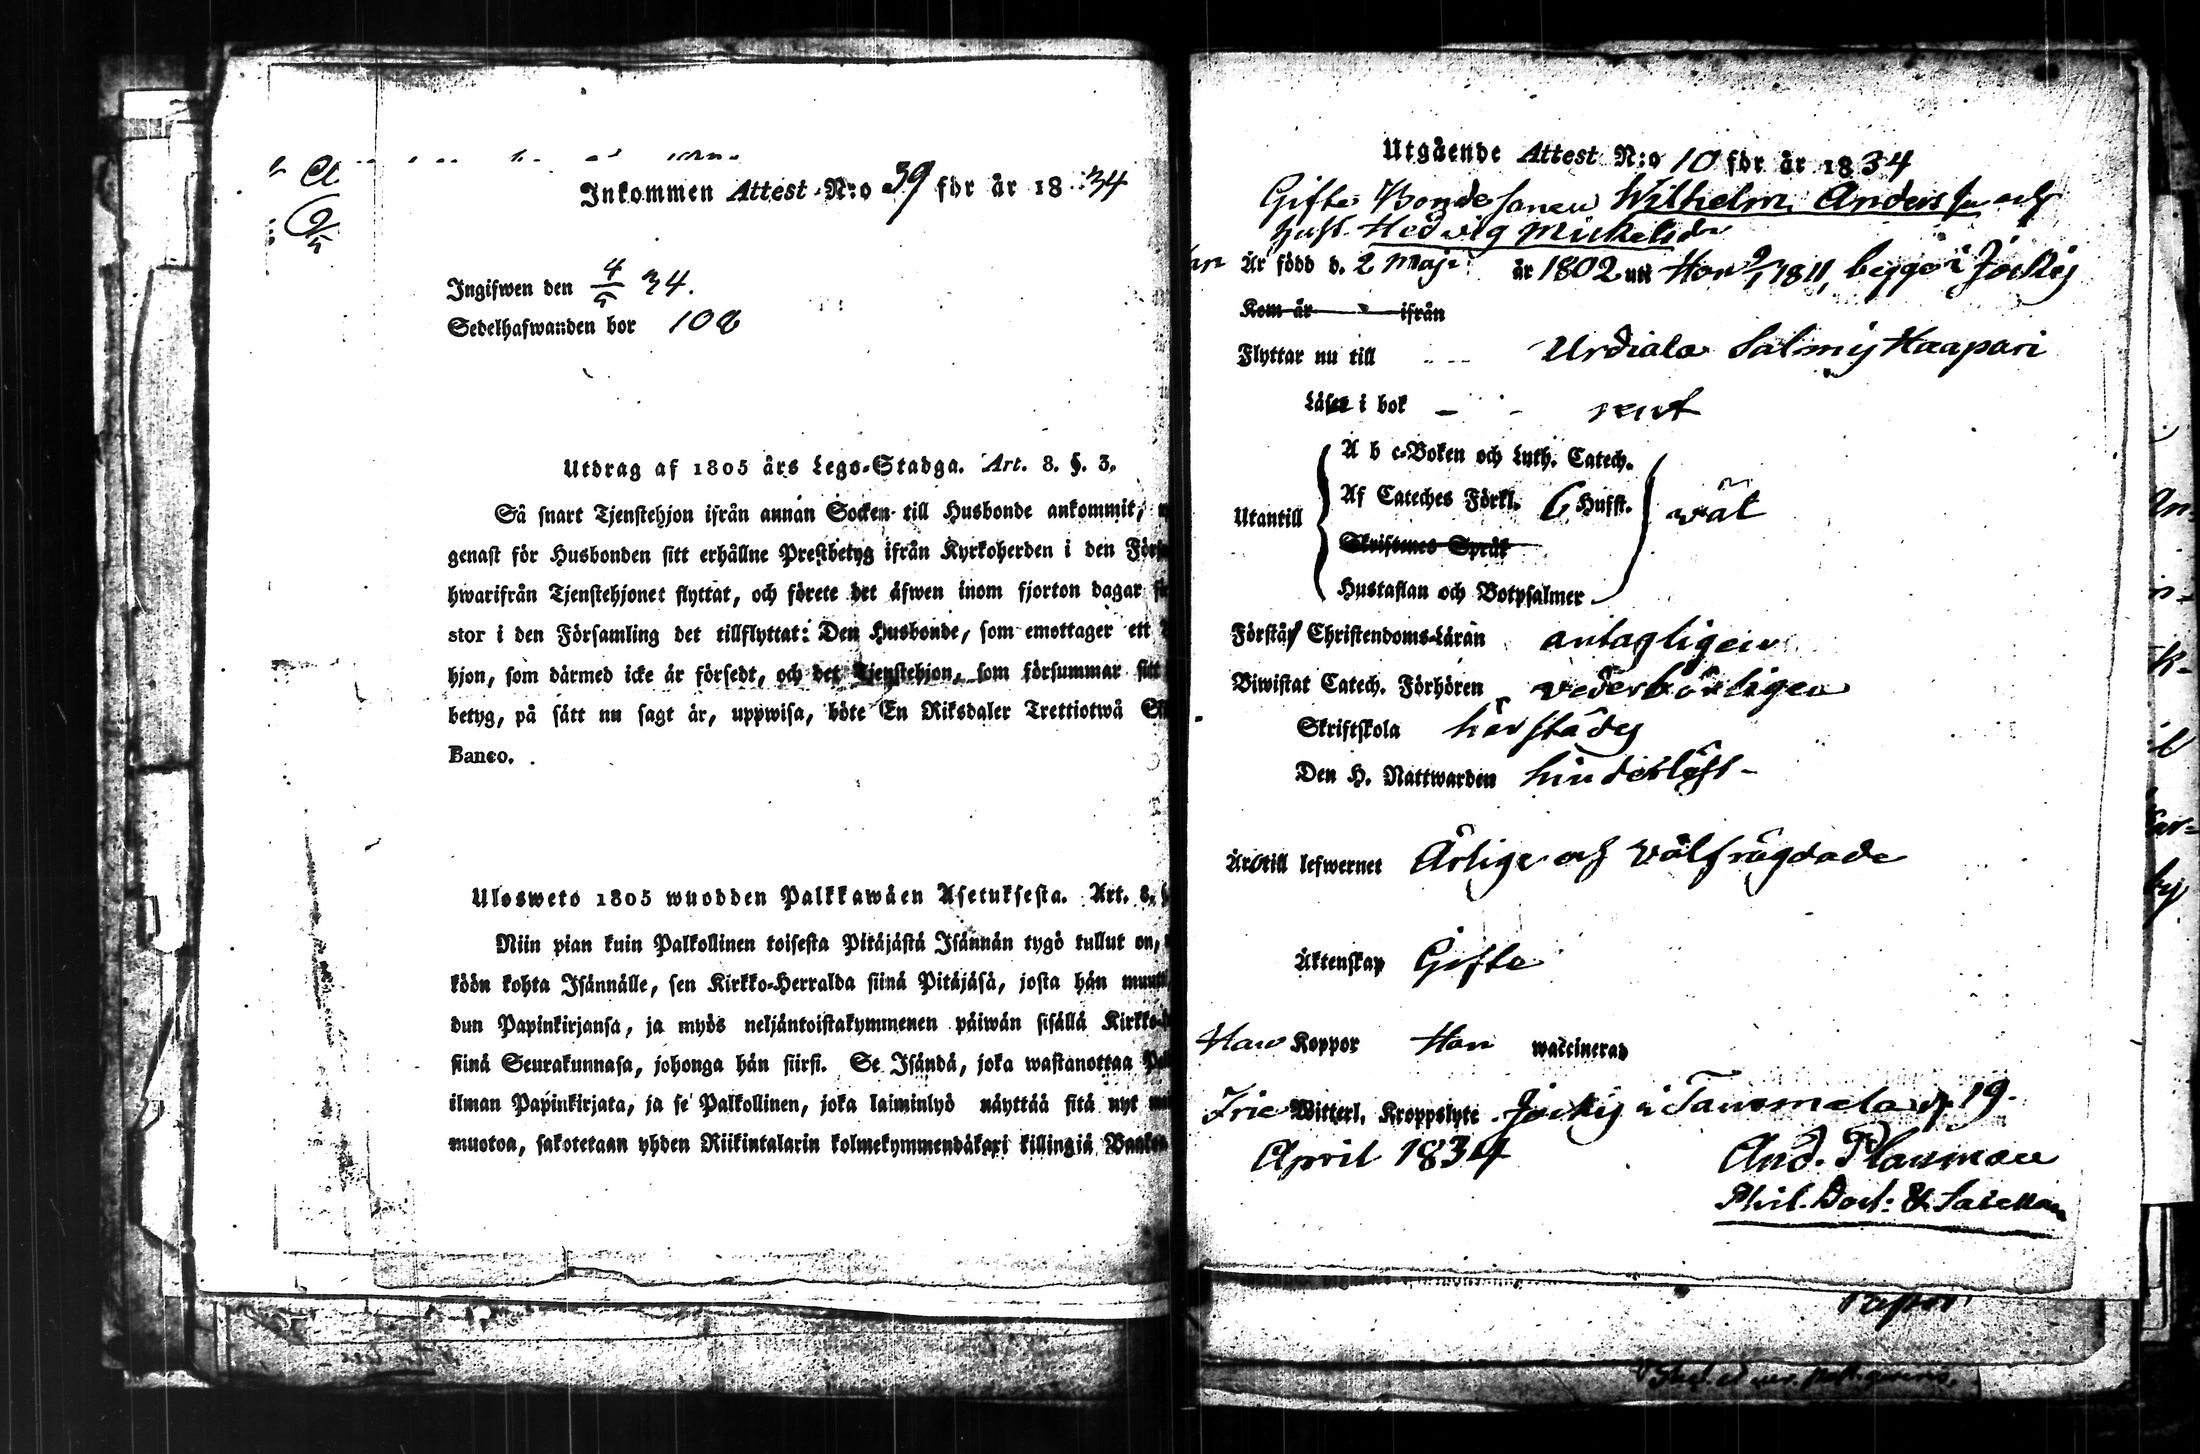 Inkommen Attest N:o 39 för år 1834
Ingifwen den 4/5 34.
Sedelhafwanden bor 102
Utdrag af 1805 års Lego-Stadga. Art. 8. §. 3.
Så snart Tjenstehjon ifrån annan Socken till Husbonde ankommit,
genast för Husbonden sitt erhållne Prestbetyg ifrån Kyrkoherden i den
hwarifrån Tjenstehjonet flyttat, och förete det äfwen inom fjorton dagar
stor i den Församling det tillflyttat: Den Husbonde, som emottager ett
hjon, som därmed icke är försedt, och det Tjenstehjon, som försummar sitt
betyg, på sätt nu sagt är, uppwisa, böte En Riksdaler Trettiotwå
Banco.
Ulosweto 1805 wuodden Palkkawäen Asetuksesta. Art. 8.
Niin pian kuin Palkollinen toisesta Pitäjästä Isännän tygö tullut on,
köön kohta Isännälle, sen Kirkko-Herralda siinä Pitäjäsä, josta hän
dun Papinkirjansa, ja myös neljäntoistakymmenen päiwän sisällä
siinä Seurakunnasa, johonga hän siirsi. Se Isändä, joka wastanottaa
ilman Papinkirjata, ja se Palkollinen, joka laiminlyö näyttää sitä nyt
muotoa, sakotetaan yhden Riikintalarin kolmekymmendäkaxi killingiä
Utgående Attest N:o 10 för år 1834
Gifte Bondesonen Wilhelm Andersson och
hust. Hedvig Mickelsdr
Är född d. 2 Maji år 1802 uti Hon 9/1 1811, begge i Jockis
Kom år ifrån
Flyttar nu till Urdiala Salmis Haapari
Läser i bok rent
A b c-Boken och Luth. Catech.
Utantill Af Cateches Förkl. 6 Hufst. wäl
Skriftenes Språk
Hustaflan och Botpsalmer
Förstår Christendoms-Läran antagligen
Biwistat Catech. Förhören vederbörligen
Skriftskola härstädes
Den H. Nattwarden hinderlöst -
Äro till lefwernet Ärlige och Wälfrägdade
Äktenskap Gifte
Haw Koppor Hon waccinerad
Frie Witterl. Kroppslyte. Jockis i Tammela d. 19.
April 1834 And. Planman
Phil. Doct: & Sacellan